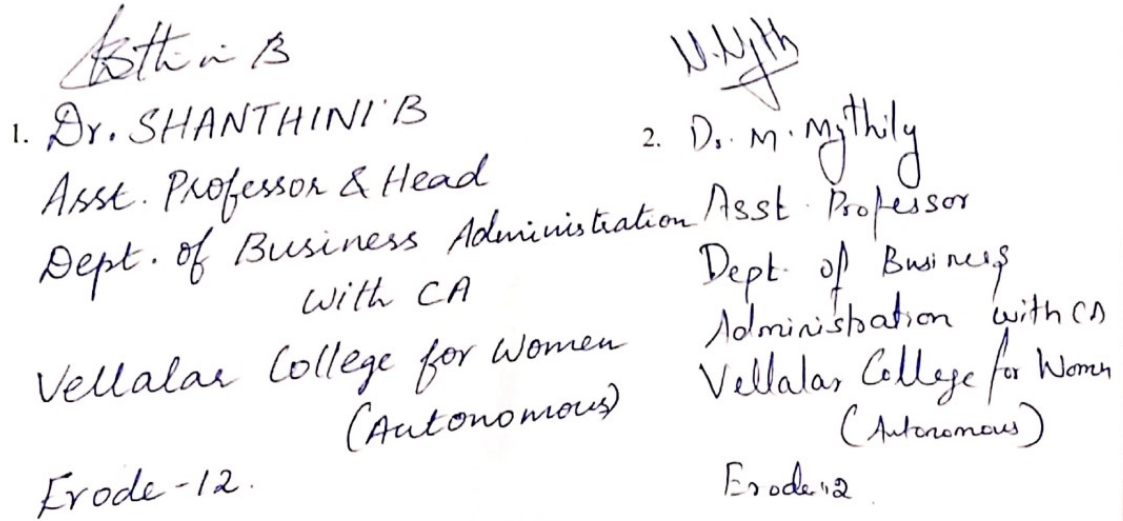 1. Dr. SHANTHINI B
Asst. Professor & Head
Dept. of Business Administration
with CA
Vellalar College for Women
(Autonomous)
Erode-12.
2. Dr. M. Mythily
Asst. Professor
Dept. of Business
Administration with CA
Vellalar College for Women
(Autonomous)
Erode-12.